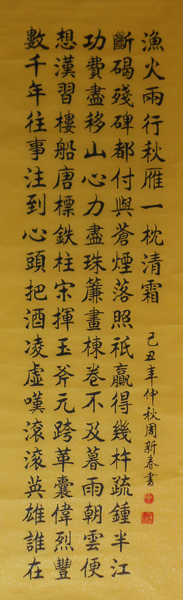 數千年往事注到心頭把酒凌虛嘆滾滾英雄誰在
想漢習樓船唐標鉄柱宋揮玉斧元跨革囊偉烈豐
功費盡移山心力盡珠簾畫棟卷不及暮雨朝雲便
斷碣殘碑都付與蒼煙落照祇贏得幾杵疏鍾半江
漁火兩行秋雁一枕清霜
己丑年仲秋周新春書